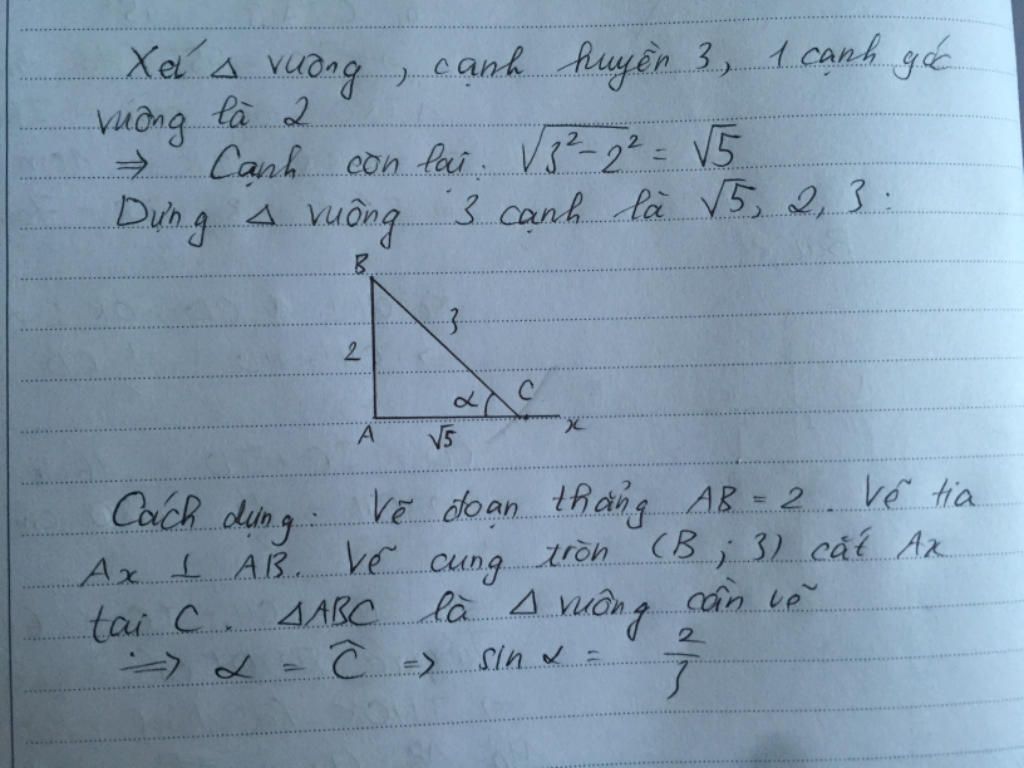 Xét Δ vuông, cạnh huyền 3, 1 cạnh góc
vuông là 2
⇒ Cạnh còn lại: √(3²-2²) = √5
Dựng Δ vuông 3 cạnh là √5, 2, 3:
B
3
2
α
C
A
√5
x
Cách dựng: Vẽ đoạn thẳng AB = 2. Vẽ tia
Ax ⊥ AB. Vẽ cung tròn (B; 3) cắt Ax
tại C. ΔABC là Δ vuông cần vẽ
⇒ α = Ĉ ⇒ sin α = 2/3